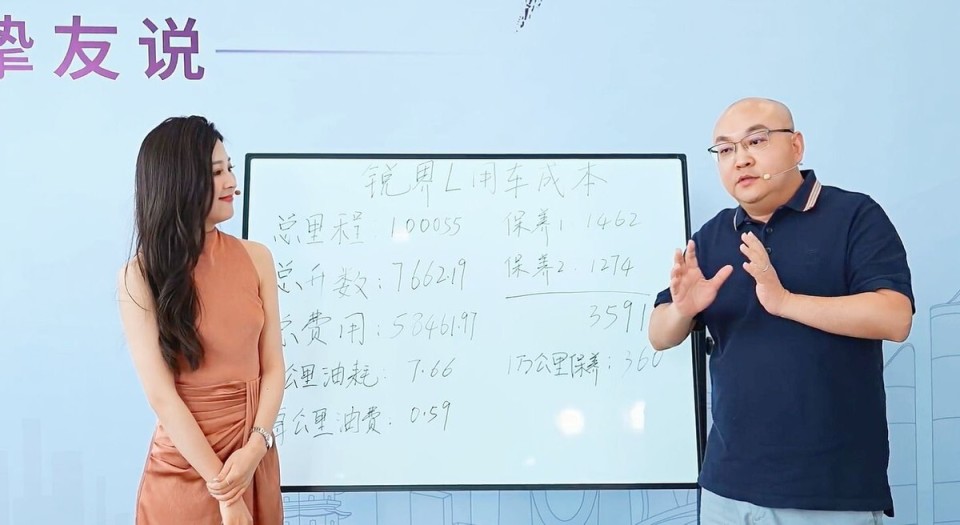 挚友说
锐界L用车成本
总里程 100055
总升数:7662.19
总费用:58461.97
公里油耗:7.66
每公里油费.0.59
保养1.1462
保养2.1274
3591
1万公里保养:360